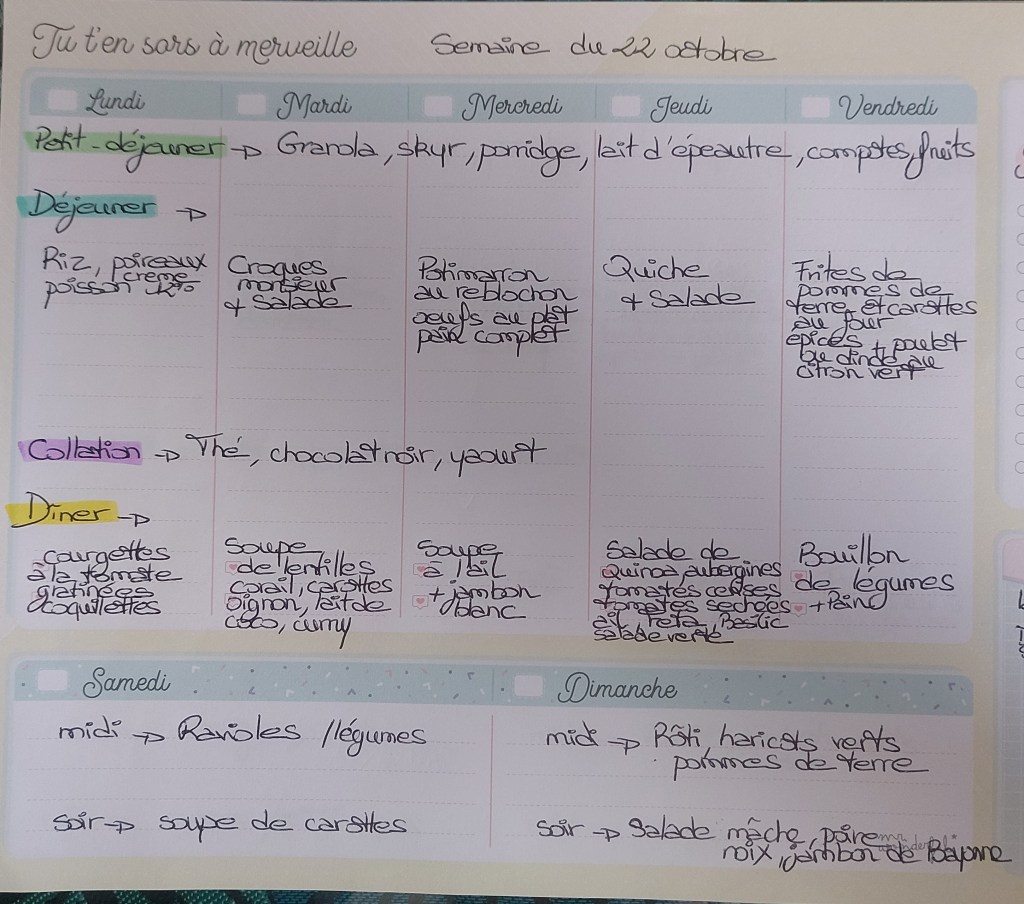 Tu t'en sors à merveille Semaine du 22 octobre
Lundi Mardi Mercredi Jeudi Vendredi
Petit-déjeuner → Granola, skyr, porridge, lait d'épeautre, compotes, fruits
Déjeuner →
Riz, poireaux
poisson crème 12%
Croques
monsieur
+ Salade
Potimarron
au reblochon
oeufs au plat
pain complet
Quiche
+ Salade
Frites de
pommes de
terre, et carottes
au four
épices + poulet
ou dinde au
citron vert
Collation → Thé, chocolat noir, yaourt
Dîner →
courgettes
à la tomate
gratinées
coquillettes
Soupe
de lentilles
corail, carottes
oignon, lait de
coco, curry
Soupe
à l'ail
+ jambon
blanc
Salade de
Quinoa, aubergines
tomates cerises
tomates sechées
ail, Feta, Basilic
salade verte
Bouillon
de légumes
+ Pain
Samedi Dimanche
midi → Ravioles /légumes
soir → soupe de carottes
midi → Rôti, haricots verts
pommes de terre
soir → Salade mâche, poire
noix, jambon de Bayonne